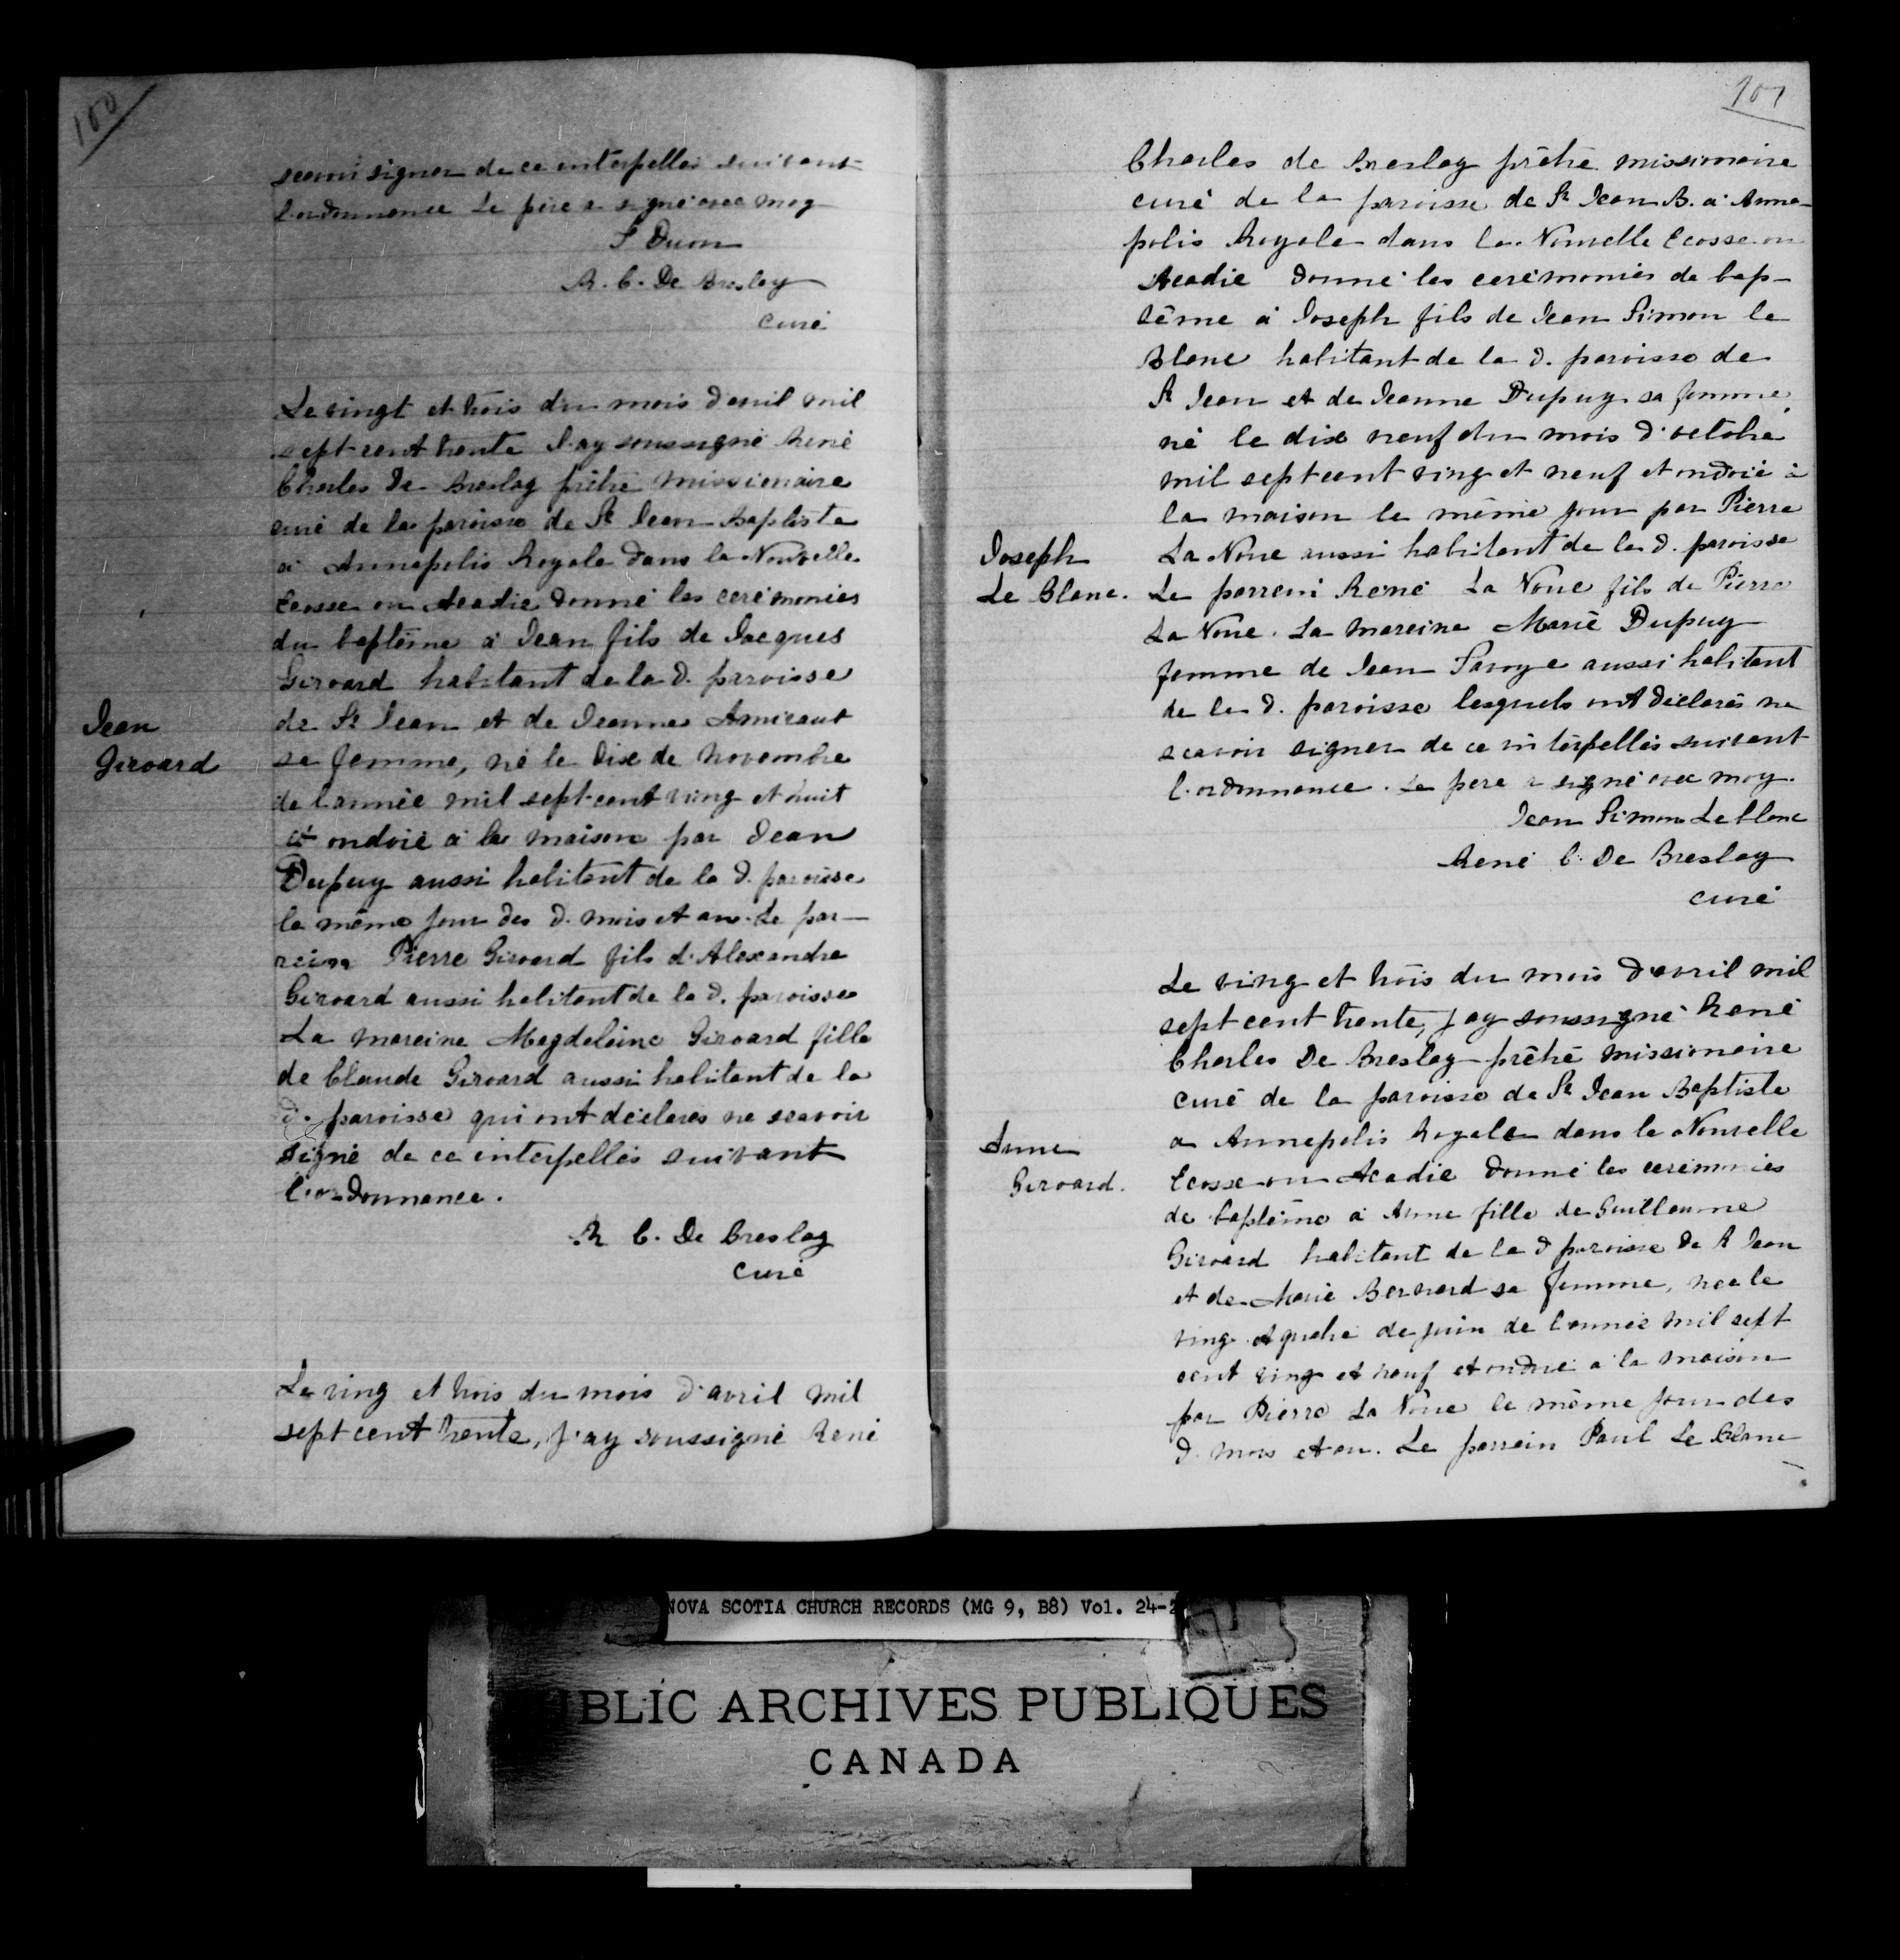 100
scavoir signer de ce interpellés suivant
l'ordonnance Le père a signé avec moy
R. C. De Breslay
curé
Le vingt et trois du mois d'avril mil
sept cent trente J'ay soussigné René
Charles De Breslay prêtre missionaire
curé de la paroisse de St Jean Baptiste
à Annapolis Royale dans la Nouvelle
Ecosse ou Acadie donné les cerémonies
du baptême à Jean fils de Jacques
Girouard habitant de la d. paroisse
de St Jean et de Jeanne Amiraut
Jean
Girouard
sa femme, né le dix de novembre
de l'année mil sept-cent ving et huit
et ondoié à la maison par Jean
Dupuy aussi habitant de la d. paroisse
le même jour des d. mois et an. Le par-
rein Pierre Girouard fils d'Alexandre
Girouard aussi habitant de la d. paroisse
La mareine Magdeleine Girouard fille
de Claude Girouard aussi habitant de la
d. paroisse qui ont déclarés ne scavoir
signé de ce interpellés suivant
l'ordonnance.
R C. De Breslay
curé
Le ving et trois du mois d'avril mil
sept cent trente, j'ay soussigné René
101
Charles de Breslay prêtre missionaire
curé de la paroisse de St Jean B. à Anna-
polis Royale dans la Nouvelle Ecosse ou
Acadie donné les cerémonies de bap-
tême à Joseph fils de Jean Simon le
Blanc habitant de la d. paroisse de
St Jean et de Jeanne Dupuy sa femme
né le dix neuf du mois d'octobre
mil sept cent ving et neuf et ondoié à
la maison le même jour par Pierre
Joseph
Le Blanc.
La Noue aussi habitant de la d. paroisse
Le parrein René La Noue fils de Pierre
La Noue. La mareine Marie Dupuy
femme de Jean Savoye aussi habitant
de la d. paroisse lesquels ont déclarés ne
scavoir signer de ce interpellés suivant
l'ordonnance. Le pere a signé avec moy.
Jean Simon Leblanc
René C. De Breslay
curé
Le ving et trois du mois d'avril mil
sept cent trente, j'ay soussigné René
Charles De Breslay prêtre missionaire
curé de la paroisse de St Jean Baptiste
Anne
Girouard.
a Annapolis Royale dans la Nouvelle
Ecosse ou Acadie donné les cerémonies
de baptême à Anne fille de Guillaume
Girouard habitant de la d paroisse de St Jean
et de Marie Bernard sa femme, née le
ving et quatre de juin de l'année mil sept
cent ving et neuf et ondoié à la maison
par Pierre La Noue le même jour des
d. mois et an. Le parrain Paul Le Blanc
NOVA SCOTIA CHURCH RECORDS (MG 9, B8) Vol. 24-2
PUBLIC ARCHIVES PUBLIQUES
CANADA